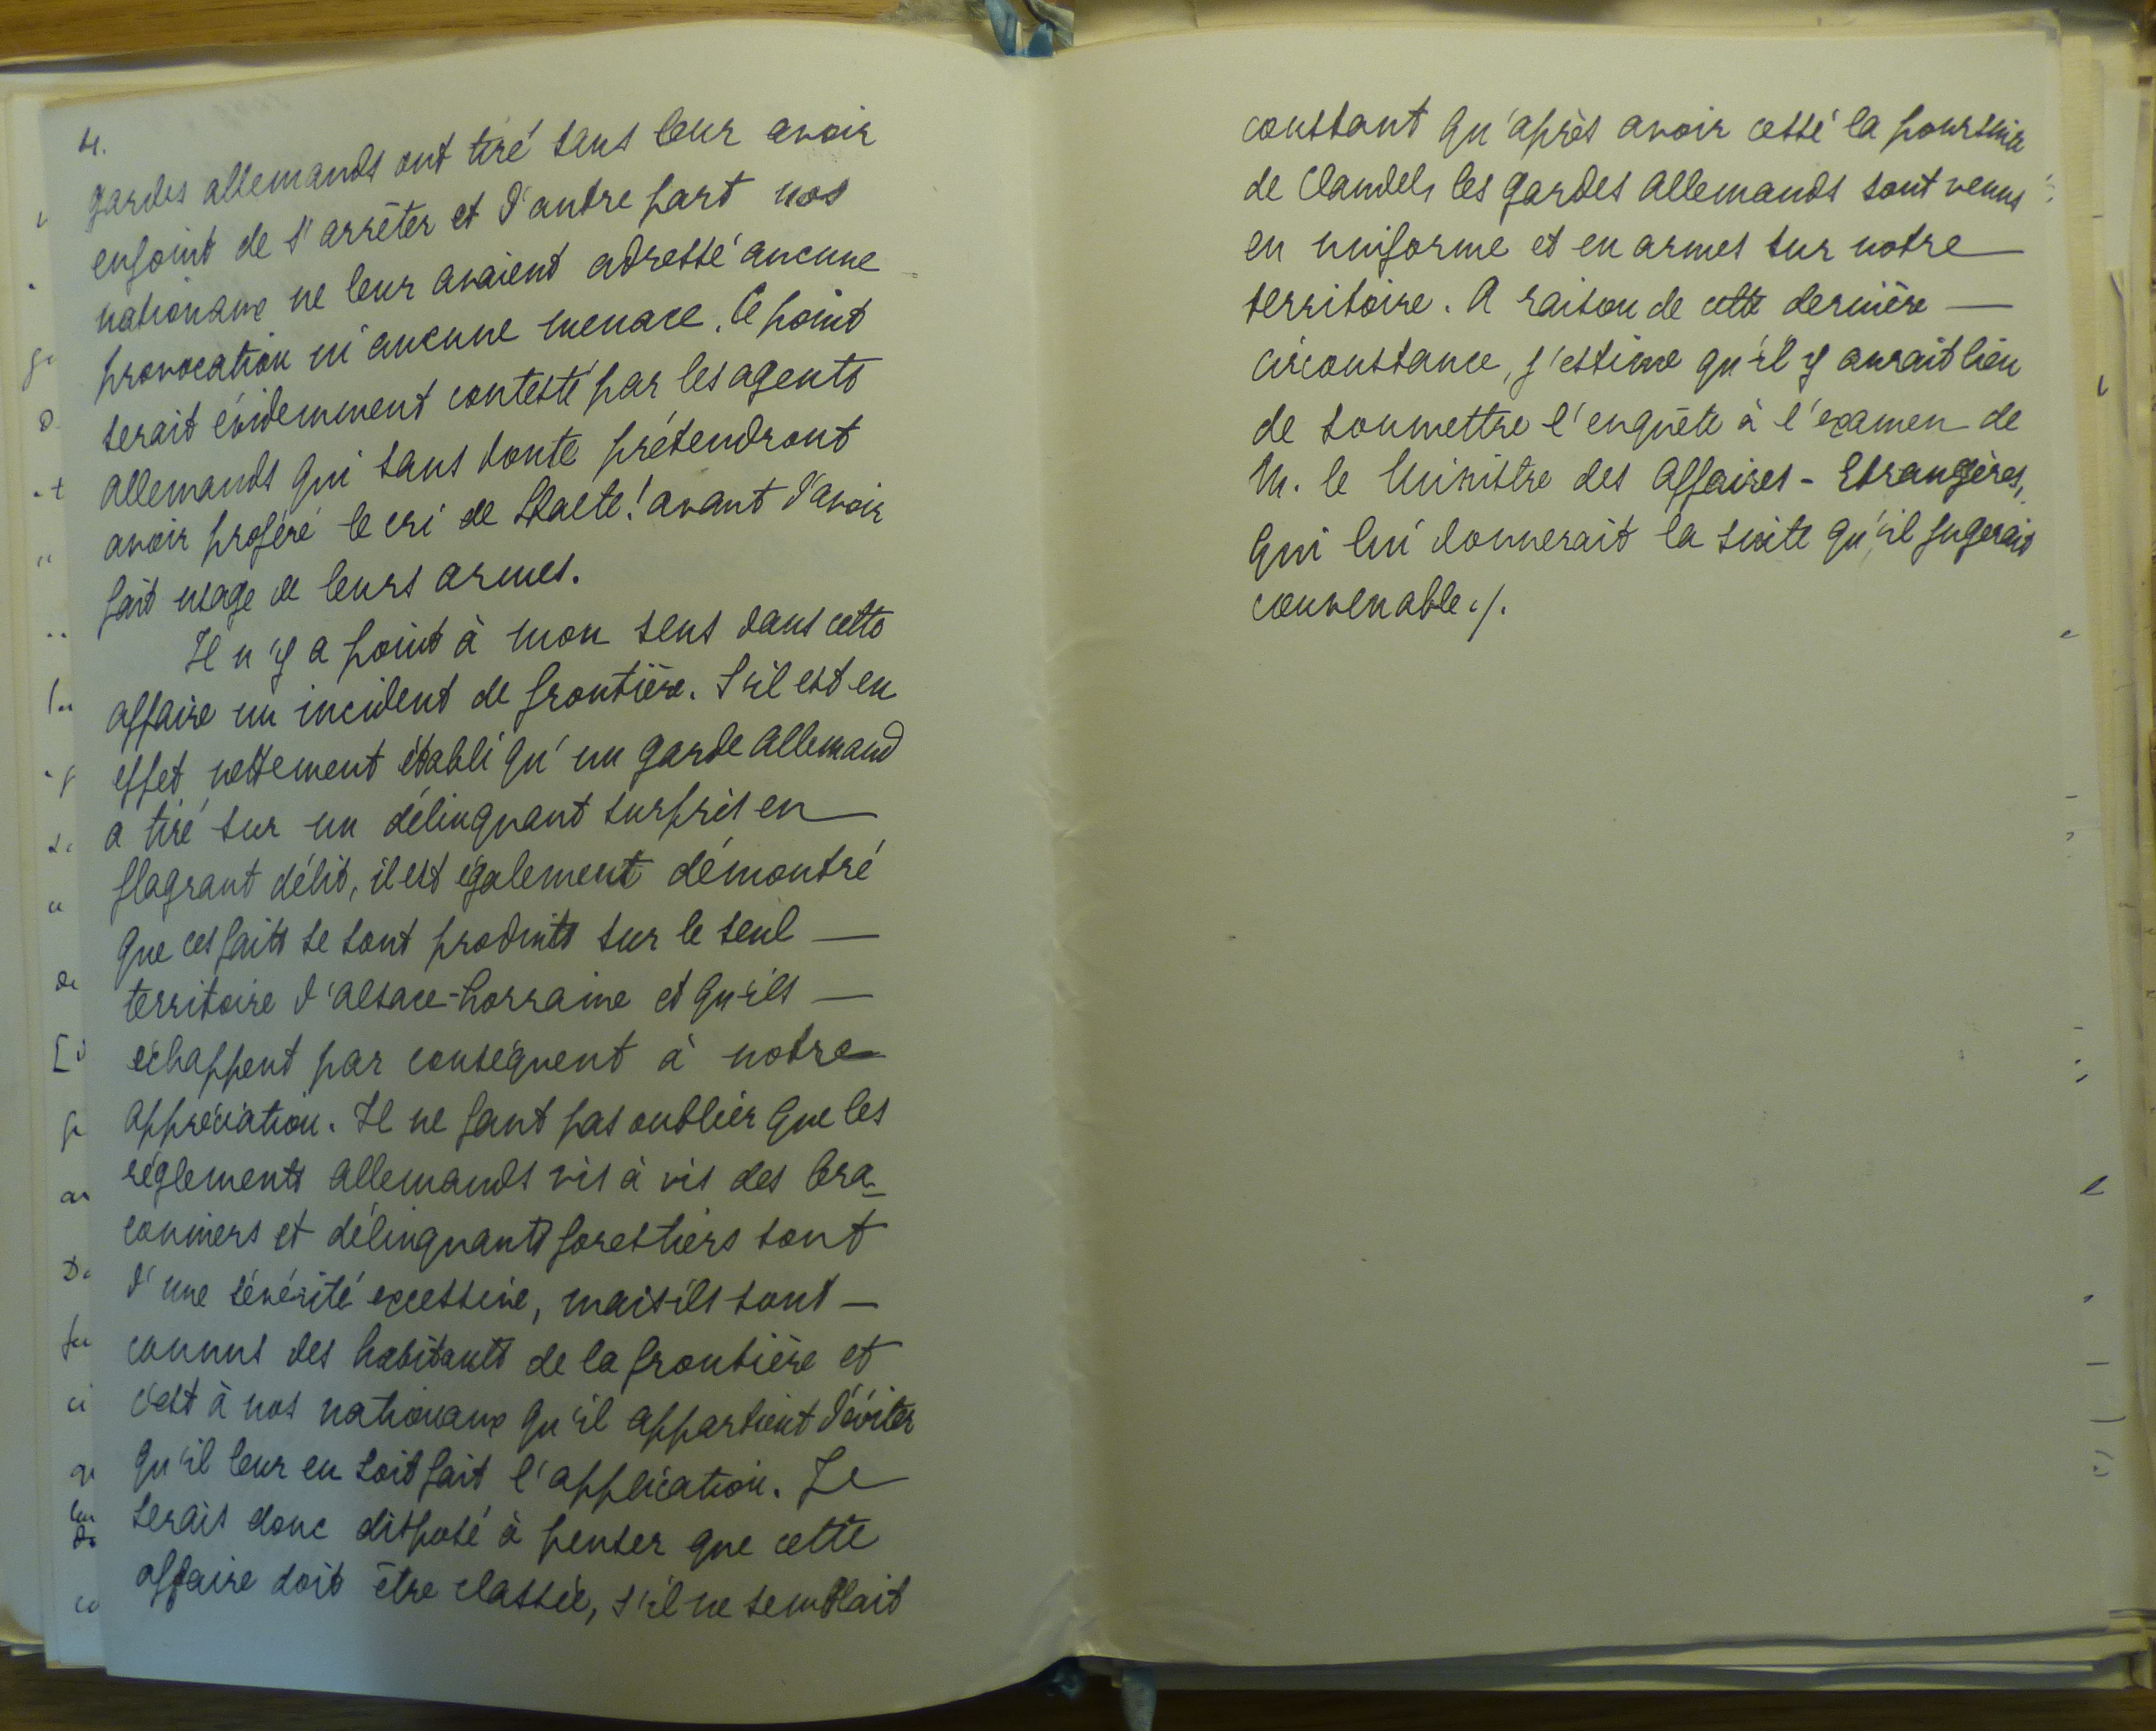 4.
gardes allemands ont tiré sans leur avoir
enjoint de s'arrêter et d'autre part nos
nationaux ne leur avaient adressé aucune
provocation ni aucune menace. Ce point
serait évidemment contesté par les agents
allemands qui sans doute prétendront
avoir proféré le cri de Halte! avant d'avoir
fait usage de leurs armes.
Il n'y a point à mon sens dans cette
affaire un incident de frontière. S'il est en
effet nettement établi qu'un garde allemand
a tiré sur un délinquant surpris en
flagrant délit, il est également démontré
que ces faits se sont produits sur le seul —
territoire d'Alsace-Lorraine et qu'ils —
échappent par conséquent à notre
appréciation. Il ne faut pas oublier que les
règlements allemands vis à vis des bra-
conniers et délinquants forestiers sont
d'une sévérité excessive, mais ils sont —
connus des habitants de la frontière et
c'est à nos nationaux qu'il appartient d'éviter
qu'il leur en soit fait l'application. Je
serais donc disposé à penser que cette
affaire doit être classée, s'il ne semblait
constant qu'après avoir cessé la poursuite
de Claudel, les gardes allemands sont venus
en uniforme et en armes sur notre
territoire. A raison de cette dernière —
circonstance, j'estime qu'il y aurait lieu
de soumettre l'enquête à l'examen de
M. le Ministre des Affaires - Etrangères,
qui lui donnerait la suite qu'il jugerait
convenable ./.